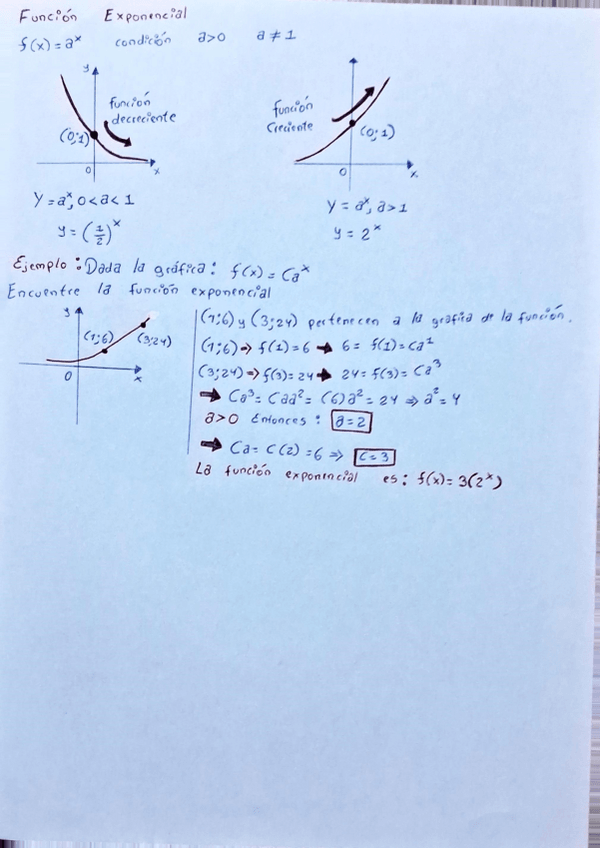 Función Exponencial
f(x) = aˣ condición a>0 a ≠ 1
y
función
decreciente
(0;1)
0
x
función
Creciente
(0;1)
0
x
Y = aˣ, 0 < a < 1
y = (1/2)ˣ
Y = aˣ, a > 1
y = 2ˣ
Ejemplo: Dada la gráfica: f(x) = Caˣ
Encuentre la función exponencial
y
(1;6)
(3;24)
0
x
(1;6) y (3;24) pertenecen a la gráfica de la función.
(1;6) → f(1) = 6 → 6 = f(1) = Ca¹
(3;24) → f(3) = 24 → 24 = f(3) = Ca³
→ Ca³ = Caa² = (6)a² = 24 ⇒ a² = 4
a>0 Entonces: a=2
→ Ca = C(2) = 6 ⇒ C=3
La función exponencial es: f(x) = 3(2ˣ)